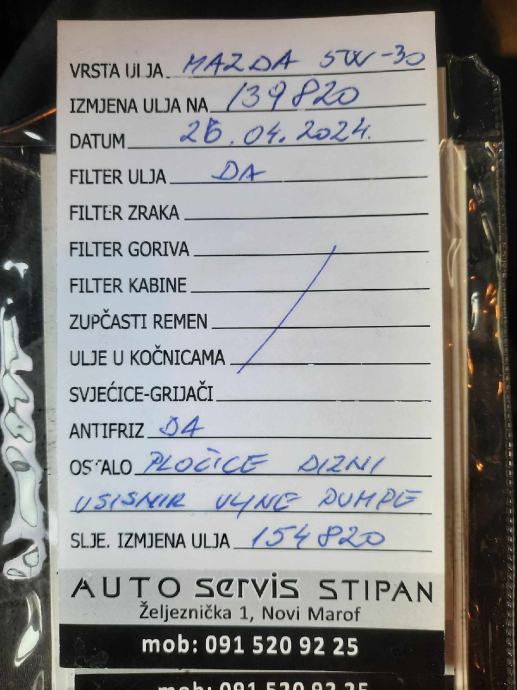 VRSTA ULJA MAZDA 5W-30
IZMJENA ULJA NA 139820
DATUM 26.04.2024.
FILTER ULJA DA
FILTER ZRAKA
FILTER GORIVA
FILTER KABINE
ZUPČASTI REMEN
ULJE U KOČNICAMA
SVJEĆICE-GRIJAČI
ANTIFRIZ DA
OSTALO PLOČICE DIZNI
USISNIK ULJNE PUMPE
SLJE. IZMJENA ULJA 154820
AUTO servis STIPAN
Željeznička 1, Novi Marof
mob: 091 520 92 25
mob: 091 520 92 25